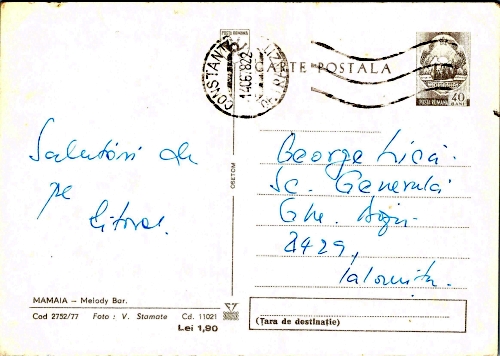 POSTA ROMANA
CONSTANTA
CARTE POSTALA
POSTA ROMANA 40 BANI
Salutări de
pe
litoral.
George Lică.
Sc. Generală
Gh.
8429,
Ialomița.
OSETCM
MAMAIA – Melody Bar.
Cod 2752/77 Foto : V. Stamate Cd. 11021
Lei 1,90
(Țara de destinație)